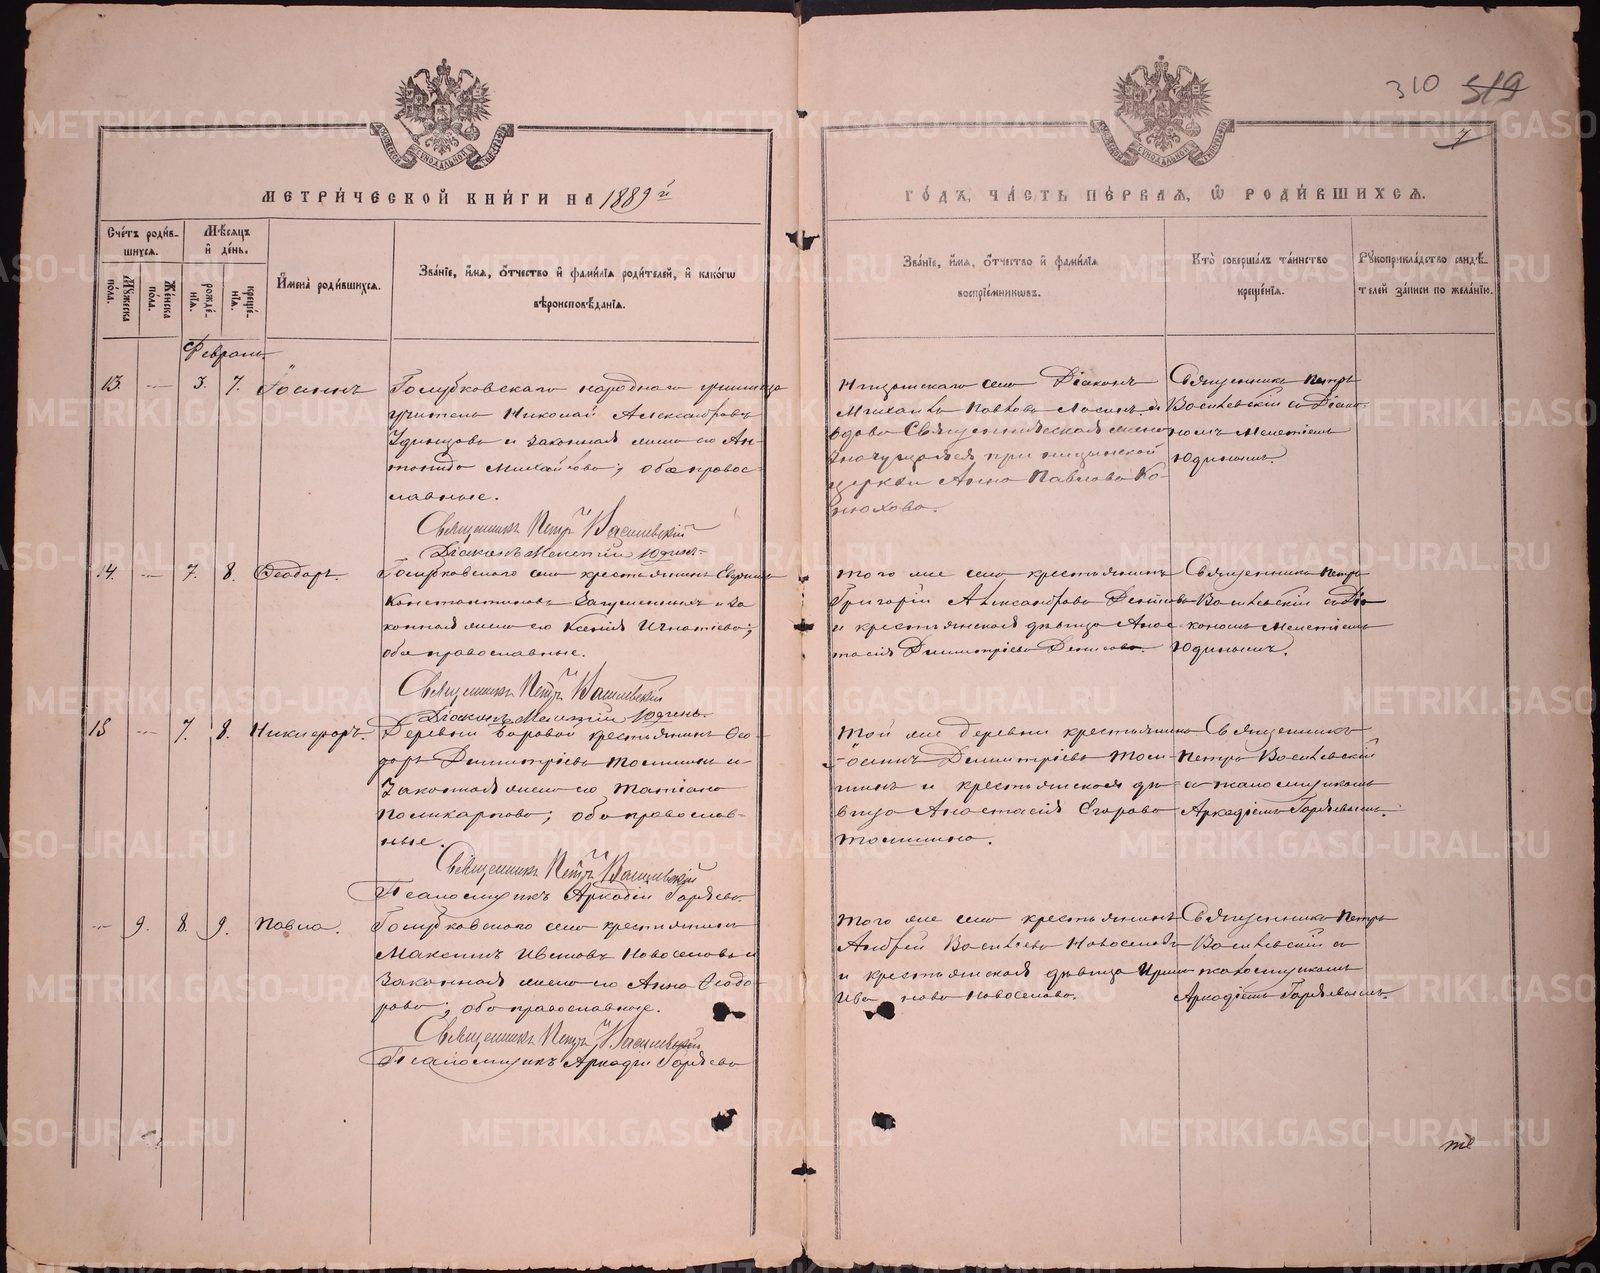 310 519
7
МЕТРИ́ЧЕСКОЙ КНИ́ГИ НА 1889 й
ГО́ДЪ, ЧА́СТЬ ПЕ́РВАЯ, Ѡ РОДИ́ВШИХСЯ.
Сче́тъ роди́вшихся.
Мѣ́сяцъ и де́нь.
Му́жеска по́ла.
Же́нска по́ла.
рожде́нія.
креще́нія.
И́мена роди́вшихся.
Зва́ніе, и́мя, о́тчество и фами́лія роди́телей, и како́гѡ
вѣроисповѣ́данія.
Зва́ніе, и́мя, о́тчество и фами́лія
воспріе́мникѡвъ.
Кто̀ соверша́лъ та́инство
креще́нія.
Рꙋкоприкла́дство свидѣ́-
телей за́писи по жела́нію.
Февраль.
13. — 3. 7. Іоаннъ
Голубковскаго народнаго училища
учитель Николай Александровъ
Удинцовъ и законная жена его Ан-
тонида Михайлова; оба правос-
лавные.
Священникъ Петръ Василевскій
Діаконъ Мелетій Юдинъ
село Діаконъ
Михаилъ Павловъ и
вдова Священническая жена
при
церкви Анна Павлова Ко-
нюхова.
Священникъ Петръ
Василевскій съ Діако-
номъ Мелетіемъ
Юдинымъ.
14. — 7. 8. Ѳеодоръ.
Голубковскаго села крестьянинъ
Константиновъ и за
конная жена его Ксенія Игнатіева;
оба православные.
Священникъ Петръ Василевскій
Діаконъ Мелетій Юдинъ.
Того же села крестьянинъ
Григорій Александровъ
и крестьянская дѣвица Анас-
тасія Димитріева Денисова.
Священникъ Петръ
Василевскій съ Діа
кономъ Мелетіемъ
Юдинымъ.
15 — 7. 8. Никифоръ.
Деревни Боровой крестьянинъ Ѳео-
доръ Димитріевъ Томшинъ и
Законная жена его Татіана
Поликарпова; оба православ-
ные.
Священникъ Петръ Василевскій
Псаломщикъ Аркадій Горяевъ.
Той же деревни крестьянинъ
Іоаннъ Димитріевъ Том-
шинъ и крестьянская дѣ-
вица Анастасія Егорова
Томшина.
Священникъ
Петръ Василевскій
съ псаломщикомъ
Аркадіемъ Горяевымъ.
— 9. 8. 9. Павла.
Голубковскаго села крестьянинъ
Максимъ Ивановъ Новоселовъ и
Законная жена его Анна Ѳеодо-
рова; оба православные.
Священникъ Петръ Василевскій
Псаломщикъ Аркадій Горяевъ
Того же села крестьянинъ
Андрей Васильевъ Новоселовъ
и крестьянская дѣвица Ирина
Ива нова Новоселова.
Священникъ Петръ
Василевскій съ
псаломщикомъ
Аркадіемъ Горяевымъ.
METRIKI.GASO-URAL.RU